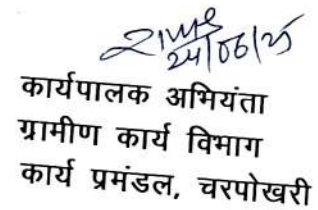 24/06/25
कार्यपालक अभियंता
ग्रामीण कार्य विभाग
कार्य प्रमंडल, चरपोखरी